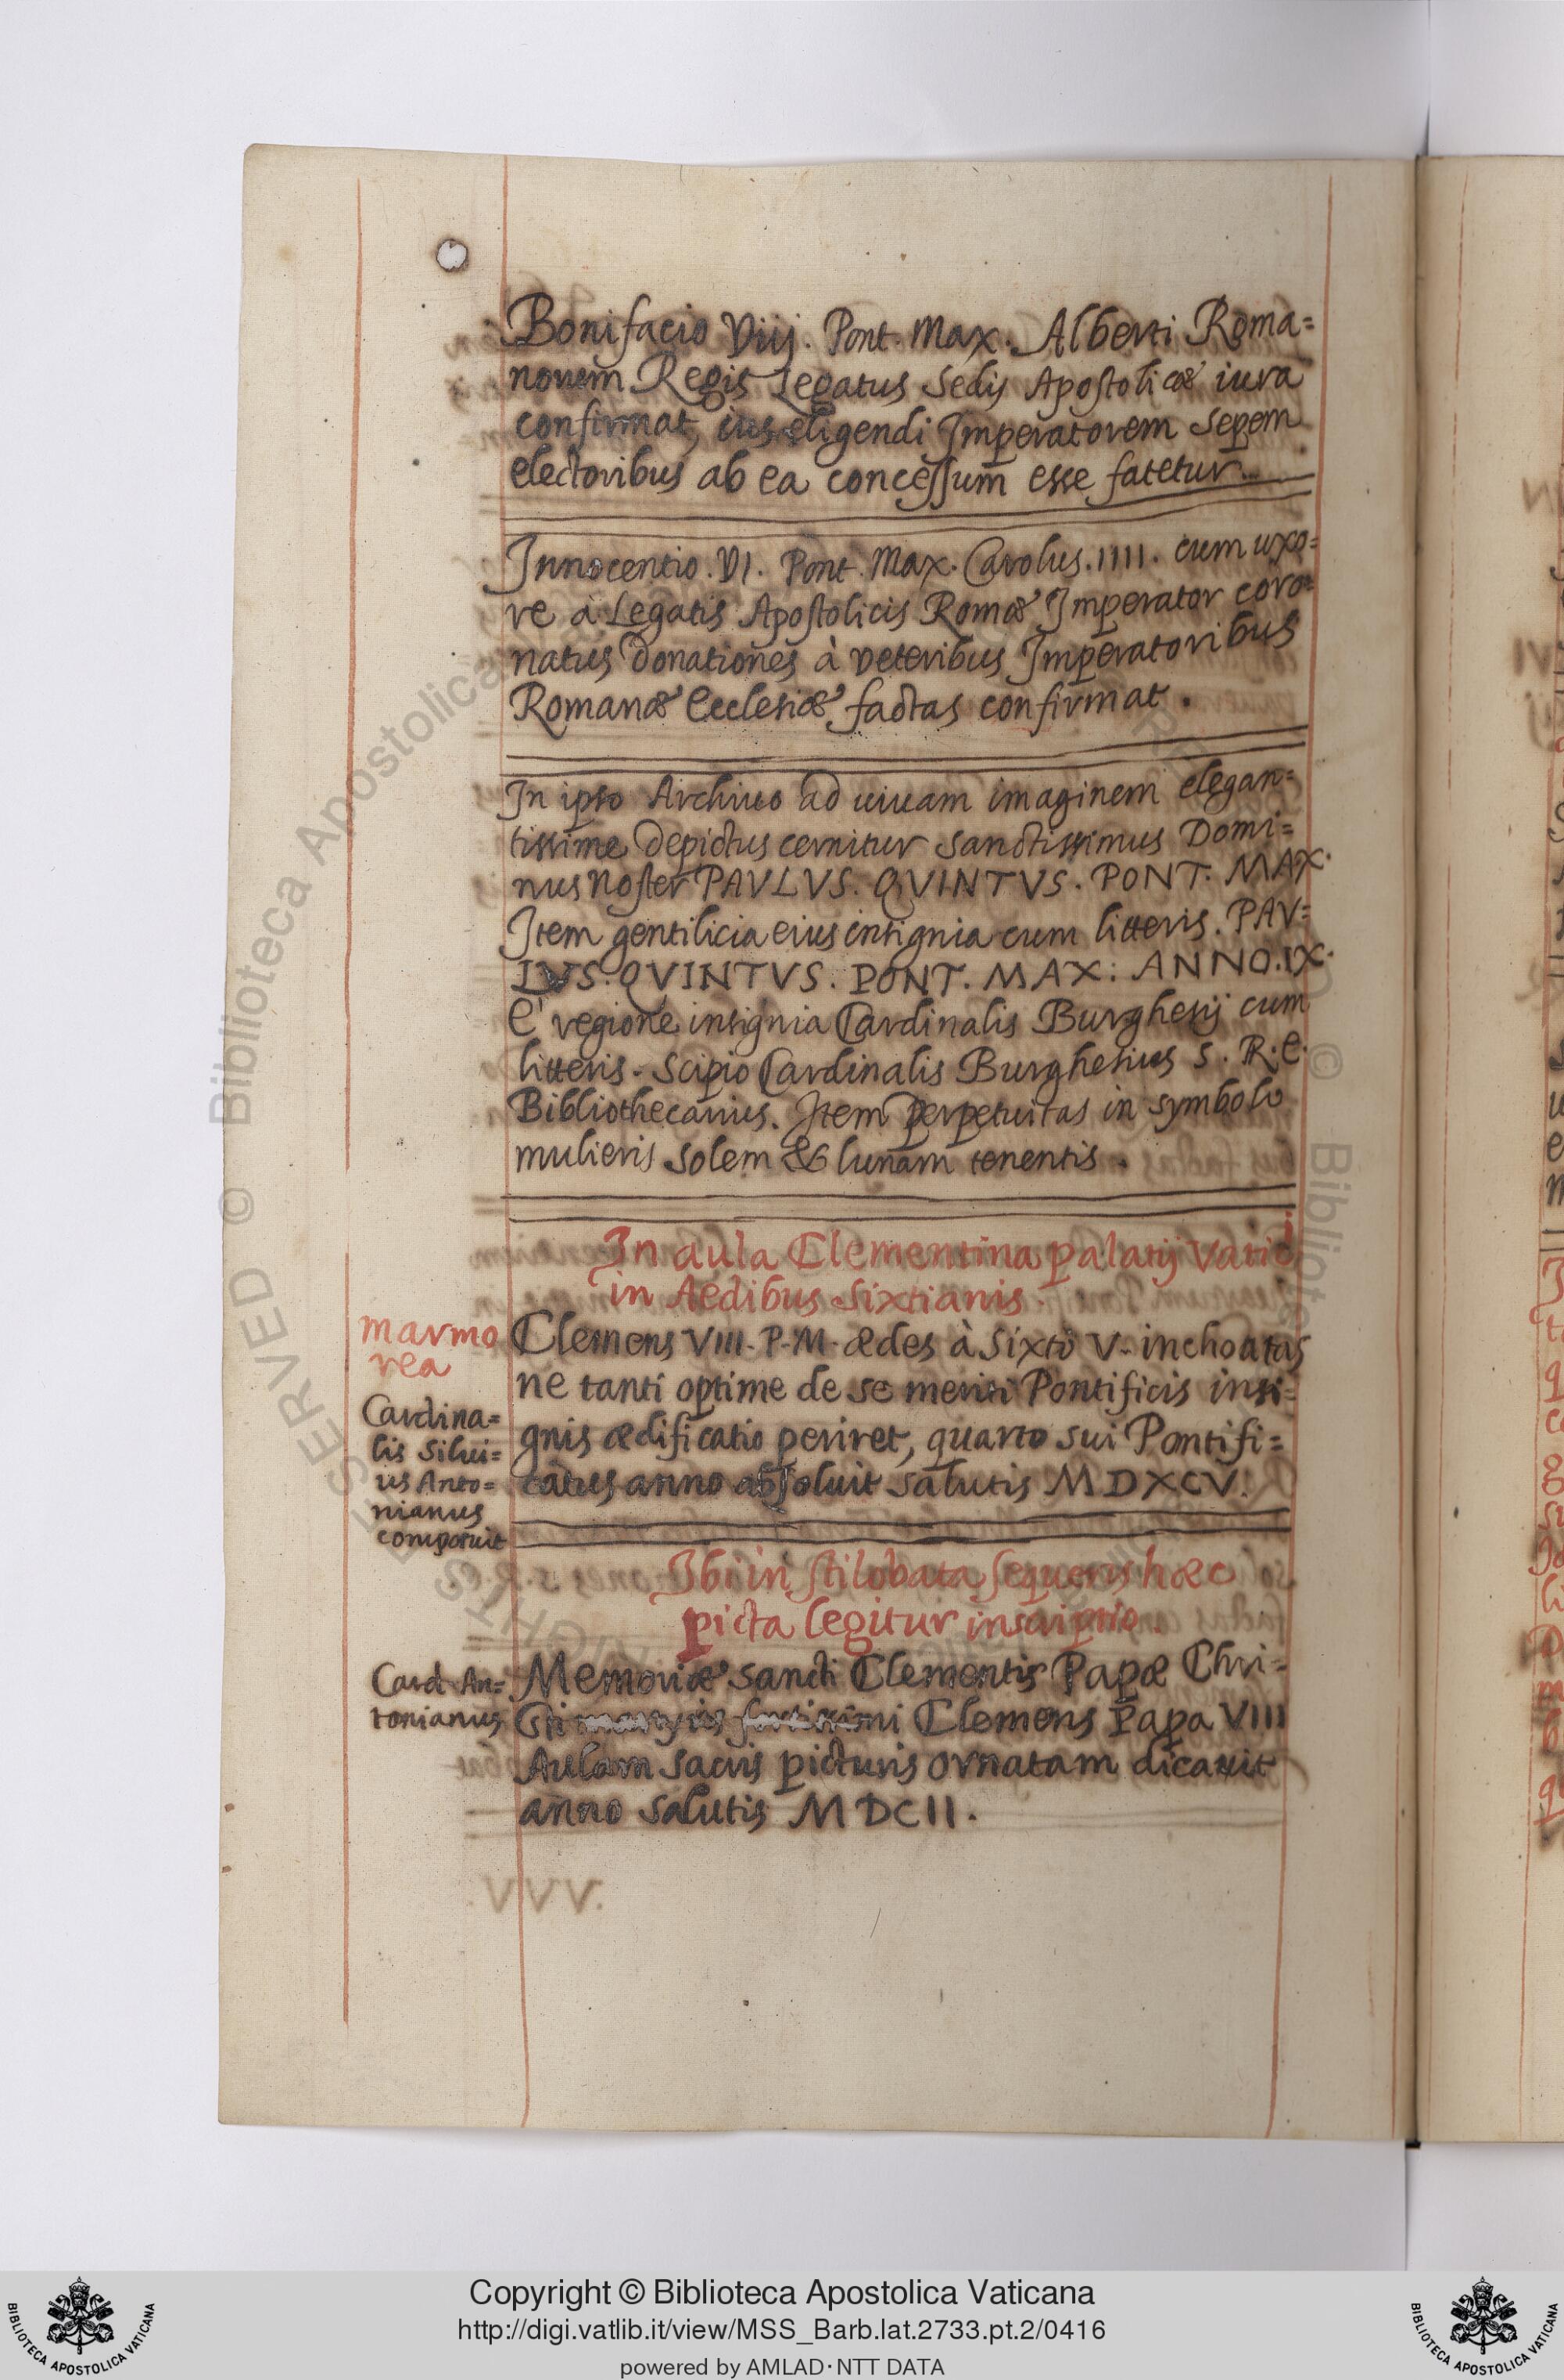 Bonifacio Viij. Pont. Max. Alberti Roma=
norum Regis Legatus Sedis Apostolicæ iura
confirmat, ius eligendi Imperatorem Septem
electoribus ab ea concessum esse fatetur.
Innocentio. VI. Pont. Max. Carolus. IIII. cum uxo=
re à Legatis Apostolicis Romæ Imperator coro=
natus donationes à veteribus Imperatoribus
Romanæ Ecclesiæ factas confirmat.
In ipso Archiuo ad uiuam imaginem elegan=
tissime depictus cernitur Sanctissimus Domi=
nus Noster PAVLVS. QVINTVS. PONT. MAX.
Item gentilicia eius insignia cum litteris. PAV=
LVS. QVINTVS. PONT. MAX: ANNO. IX.
E' regione insignia Cardinalis Burghesij cum
litteris. Scipio Cardinalis Burghesius S. R. E.
Bibliothecarius. Item Perpetuitas in symbolo
mulieris Solem & lunam tenentis.
In aula Clementina palatij Vatic
in Aedibus Sixtianis.
marmo
rea
Clemens VIII. P. M. ædes à Sixto V. inchoatas
ne tanti optime de se meriti Pontificis insi=
gnis ædificatio periret, quarto sui Pontifi=
catus anno absoluit salutis MDXCV.
Cardina=
lis Silui=
us Anto=
nianus
composuit
Ibi in stilobata sequens hæc
picta legitur inscriptio.
Card. An=
tonianus
Memoriæ Sancti Clementis Papæ Chri=
sti martyris fortissimi Clemens Papa VIII
Aulam sacris picturis ornatam dicauit
anno Salutis MDCII.
© Biblioteca Apostolica
Copyright © Biblioteca Apostolica Vaticana
http://digi.vatlib.it/view/MSS_Barb.lat.2733.pt.2/0416
powered by AMLAD·NTT DATA
BIBLIOTECA APOSTOLICA VATICANA
BIBLIOTECA APOSTOLICA VATICANA